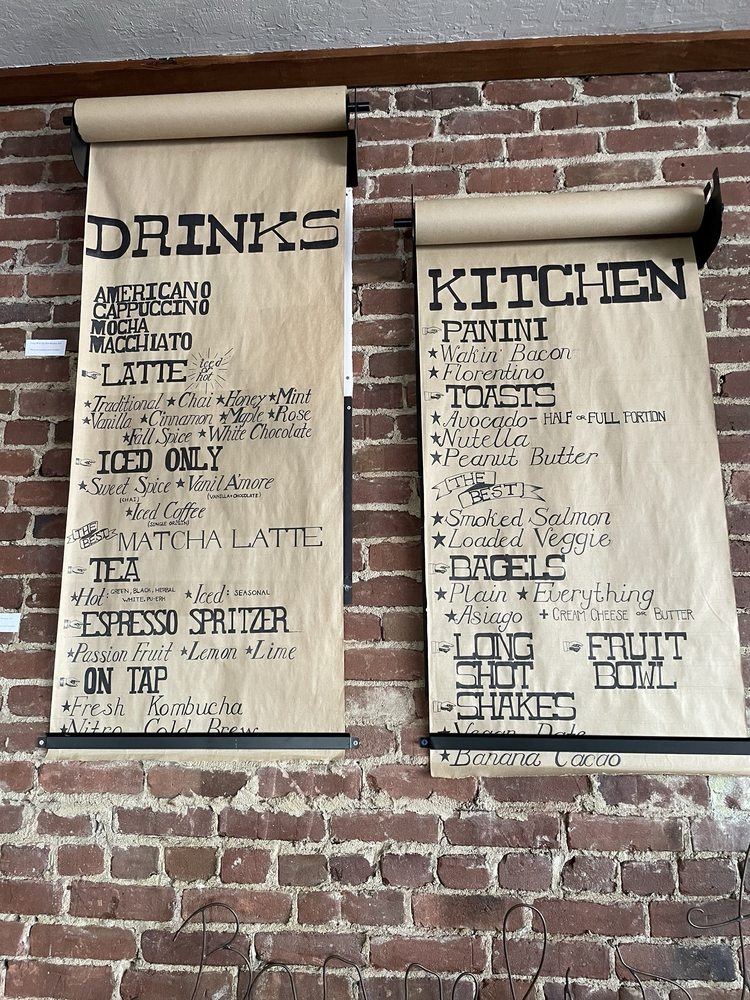 DRINKS
AMERICANO
CAPPUCCINO
MOCHA
MACCHIATO
LATTE iced or hot
★Traditional ★Chai ★Honey ★Mint
★Vanilla ★Cinnamon ★Maple ★Rose
★Fall Spice ★White Chocolate
ICED ONLY
★Sweet Spice ★Vanil A'more
(CHAI) (VANILLA + CHOCOLATE)
★Iced Coffee
(SINGLE ORIGIN)
THE BEST MATCHA LATTE
TEA
★Hot: GREEN, BLACK, HERBAL ★Iced: SEASONAL
WHITE, PU-ERH
ESPRESSO SPRITZER
★Passion Fruit ★Lemon ★Lime
ON TAP
★Fresh Kombucha
★Nitro Cold Brew
KITCHEN
PANINI
★Wakin' Bacon
★Florentino
TOASTS
★Avocado- HALF OR FULL PORTION
★Nutella
★Peanut Butter
THE
BEST
★Smoked Salmon
★Loaded Veggie
BAGELS
★Plain ★Everything
★Asiago + CREAM CHEESE OR BUTTER
LONG
SHOT
FRUIT
BOWL
SHAKES
★Vegan Date
★Banana Cacao